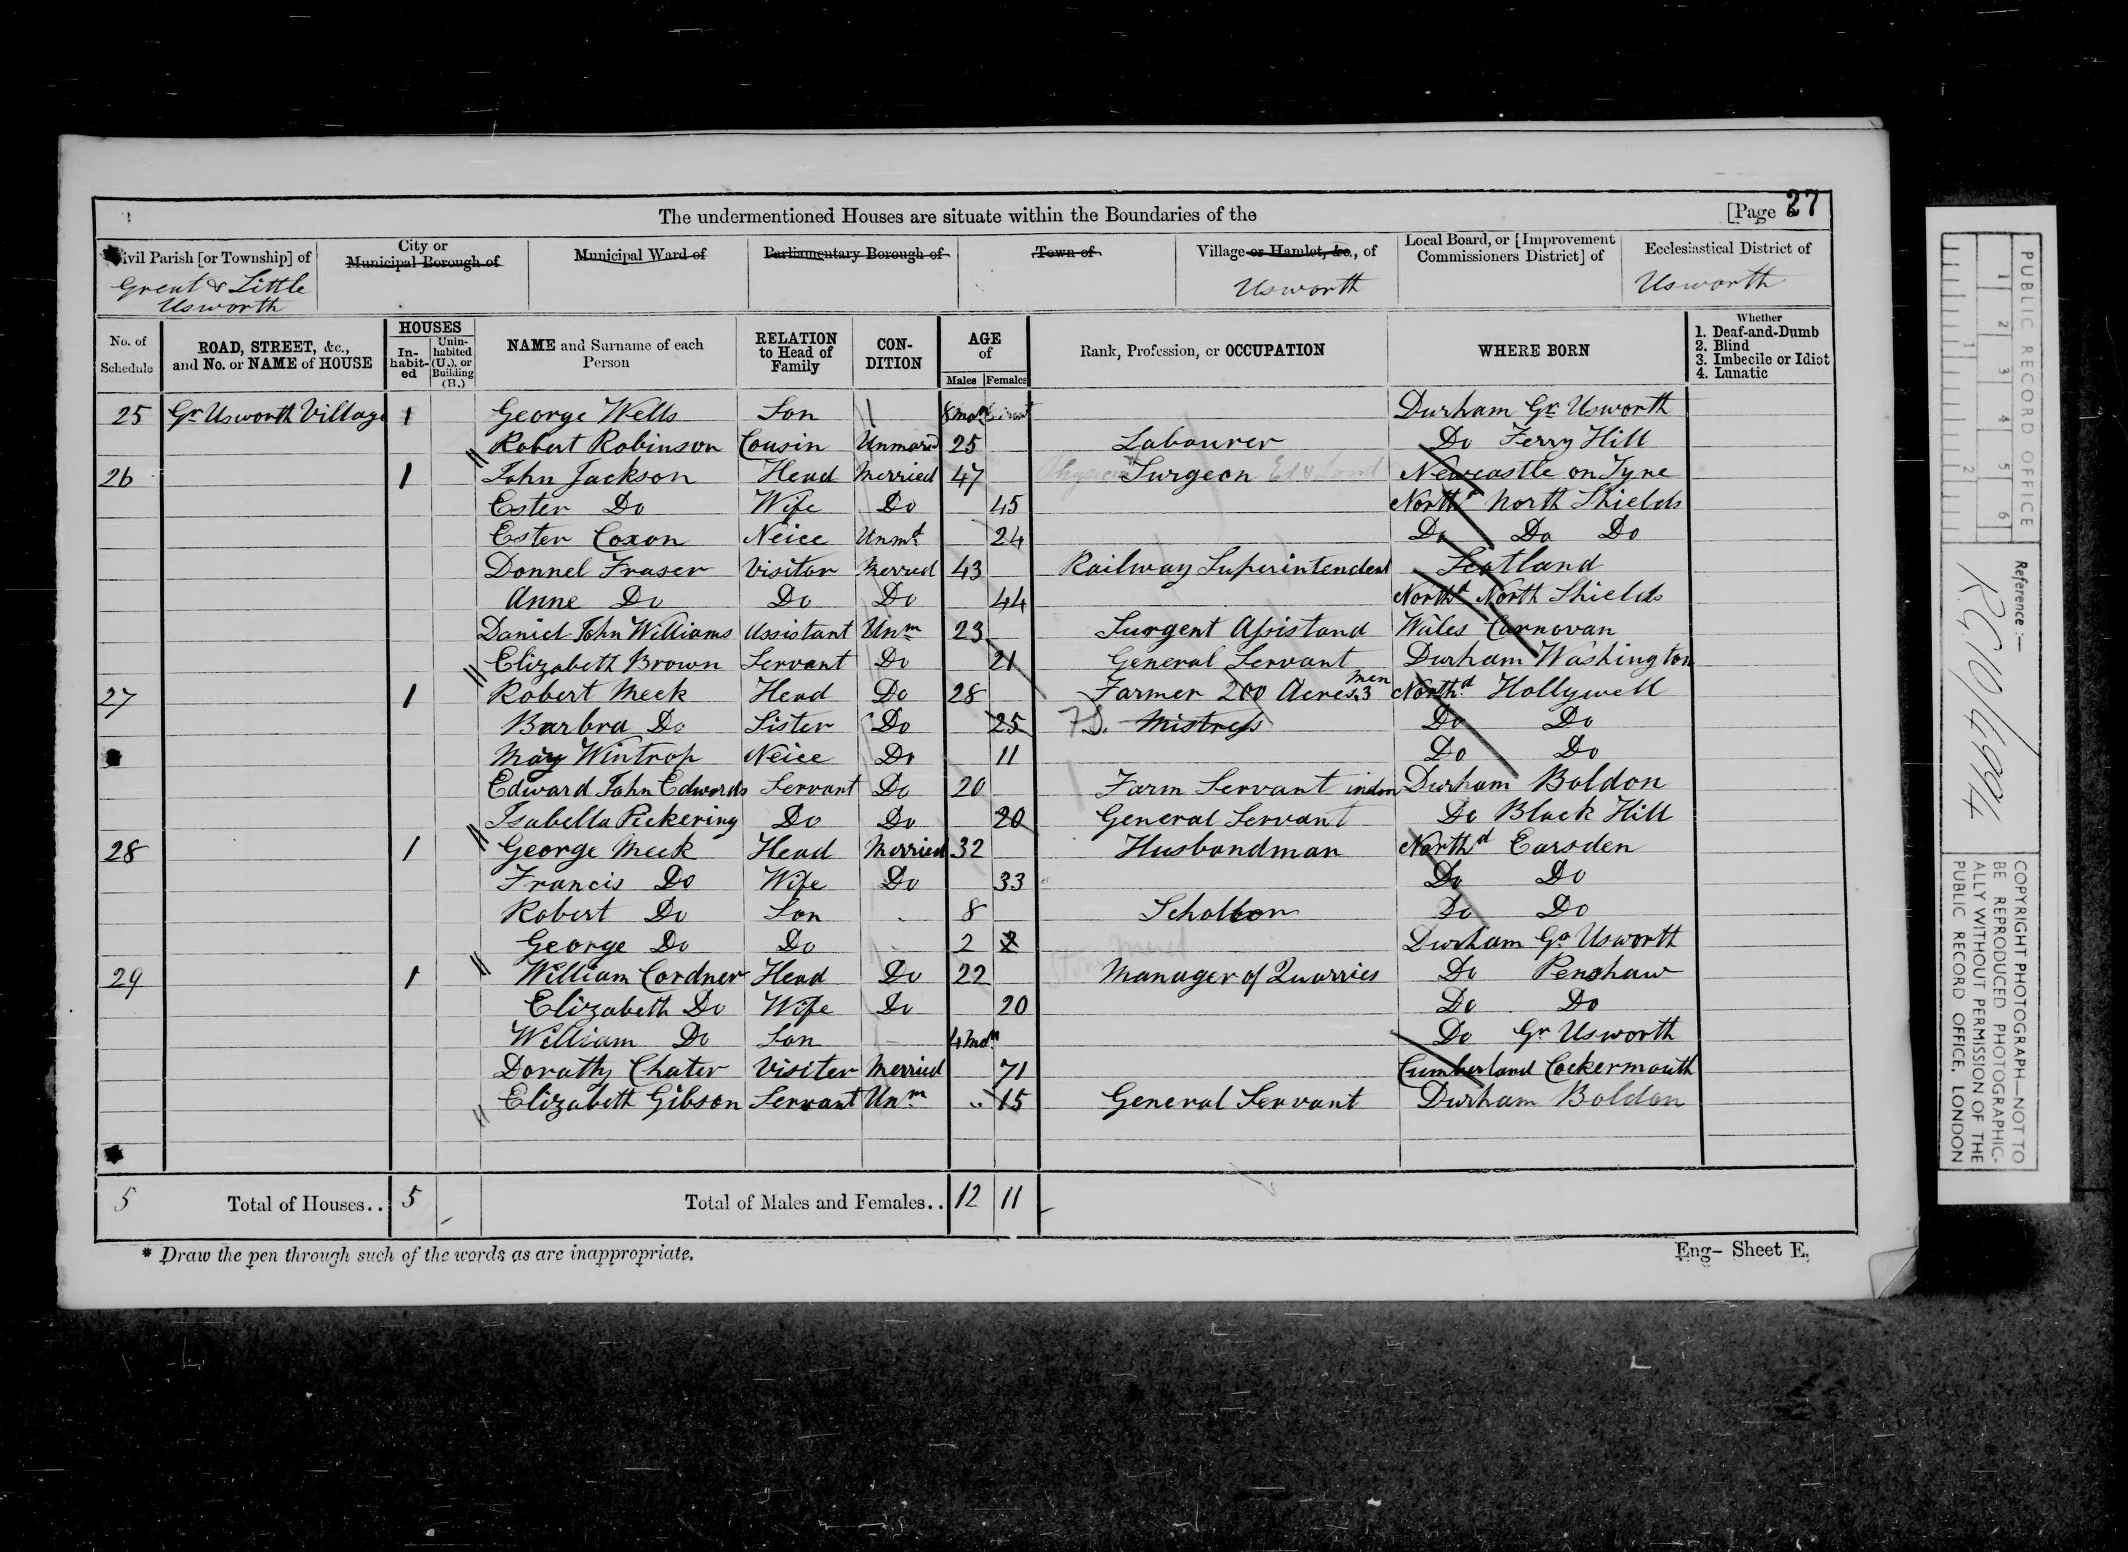 The undermentioned Houses are situate within the Boundaries of the [Page 27
Civil Parish [or Township] of City or Municipal Borough of Municipal Ward of Parliamentary Borough of Town of Village or Hamlet, &c., of Local Board, or [Improvement Commissioners District] of Ecclesiastical District of
Great & Little Usworth Usworth Usworth
No. of Schedule ROAD, STREET, &c., and No. or NAME of HOUSE HOUSES Inhabited Uninhabited (U.), or Building (B.) NAME and Surname of each Person RELATION to Head of Family CONDITION AGE of Males Females Rank, Profession, or OCCUPATION WHERE BORN Whether 1. Deaf-and-Dumb 2. Blind 3. Imbecile or Idiot 4. Lunatic
25 Gr Usworth Village 1 George Wells Son 8 mon Durham Gr Usworth
Robert Robinson Cousin Unmarrd 25 Labourer Do Ferry Hill
26 1 John Jackson Head Merried 47 Surgeon Newcastle on Tyne
Ester Do Wife Do 45 Northd North Shields
Ester Coxon Neice Unmd 24 Do Do Do
Donnel Fraser Visitor Merred 43 Railway Superintendent Scotland
Anne Do Do Do 44 Northd North Shields
Daniel John Williams Assistant Unm 23 Surgent Assistand Wales Carnovan
Elizabeth Brown Servant Do 21 General Servant Durham Washington
27 1 Robert Meek Head Do 28 Farmer 200 Acres 3 men Northd Hollywell
Barbra Do Sister Do 25 F.D. Mistress Do Do
May Wintrop Neice Do 11 Do Do
Edward John Edwards Servant Do 20 Farm Servant indon Durham Boldon
Isabella Pickering Do Do 20 General Servant Do Black Hill
28 1 George Meek Head Merried 32 Husbandman Northd Earsden
Francis Do Wife Do 33 Do Do
Robert Do Son 8 Do Do
George Do Do 2 2 Durham Gr Usworth
29 1 William Cordner Head Do 22 Manager of Quarries Do Penshaw
Elizabeth Do Wife Do 20 Do Do
William Do Son 4 mon Do Gr Usworth
Dorathy Chater Visiter Merried 71 Cumberland Cockermouth
Elizabeth Gibson Servant Unm 15 General Servant Durham Boldon
5 Total of Houses.. 5 Total of Males and Females.. 12 11
* Draw the pen through such of the words as are inappropriate.
Eng- Sheet E.
PUBLIC RECORD OFFICE
1 2 3 4 5 6
1 2
Reference :-
RG 10/4994
COPYRIGHT PHOTOGRAPH—NOT TO
BE REPRODUCED PHOTOGRAPHIC-
ALLY WITHOUT PERMISSION OF THE
PUBLIC RECORD OFFICE, LONDON